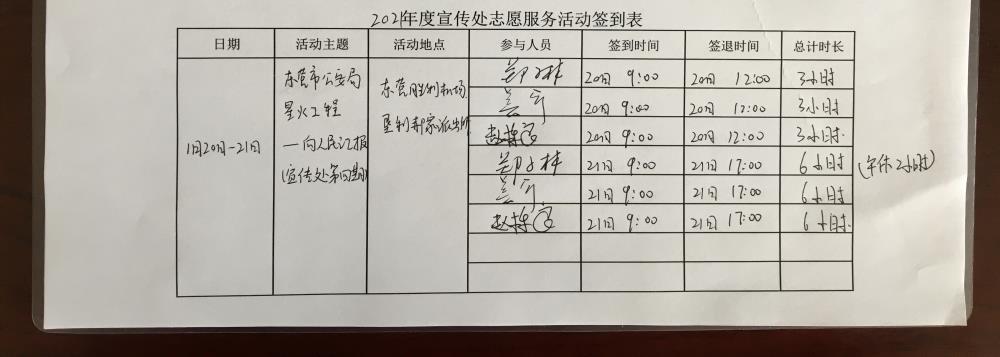 2021年度宣传处志愿服务活动签到表
日期 活动主题 活动地点 参与人员 签到时间 签退时间 总计时长
1月20日-21日
东营市公安局
星火工程
—向人民汇报
(宣传处第四期)
东营胜利机场
垦利郝家派出所
郑 林 20日 9:00 20日 12:00 3小时
吴 20日 9:00 20日 12:00 3小时
赵 20日 9:00 20日 12:00 3小时.
郑 林 21日 9:00 21日 17:00 6小时 (午休2小时)
吴 21日 9:00 21日 17:00 6小时
赵 21日 9:00 21日 17:00 6小时.